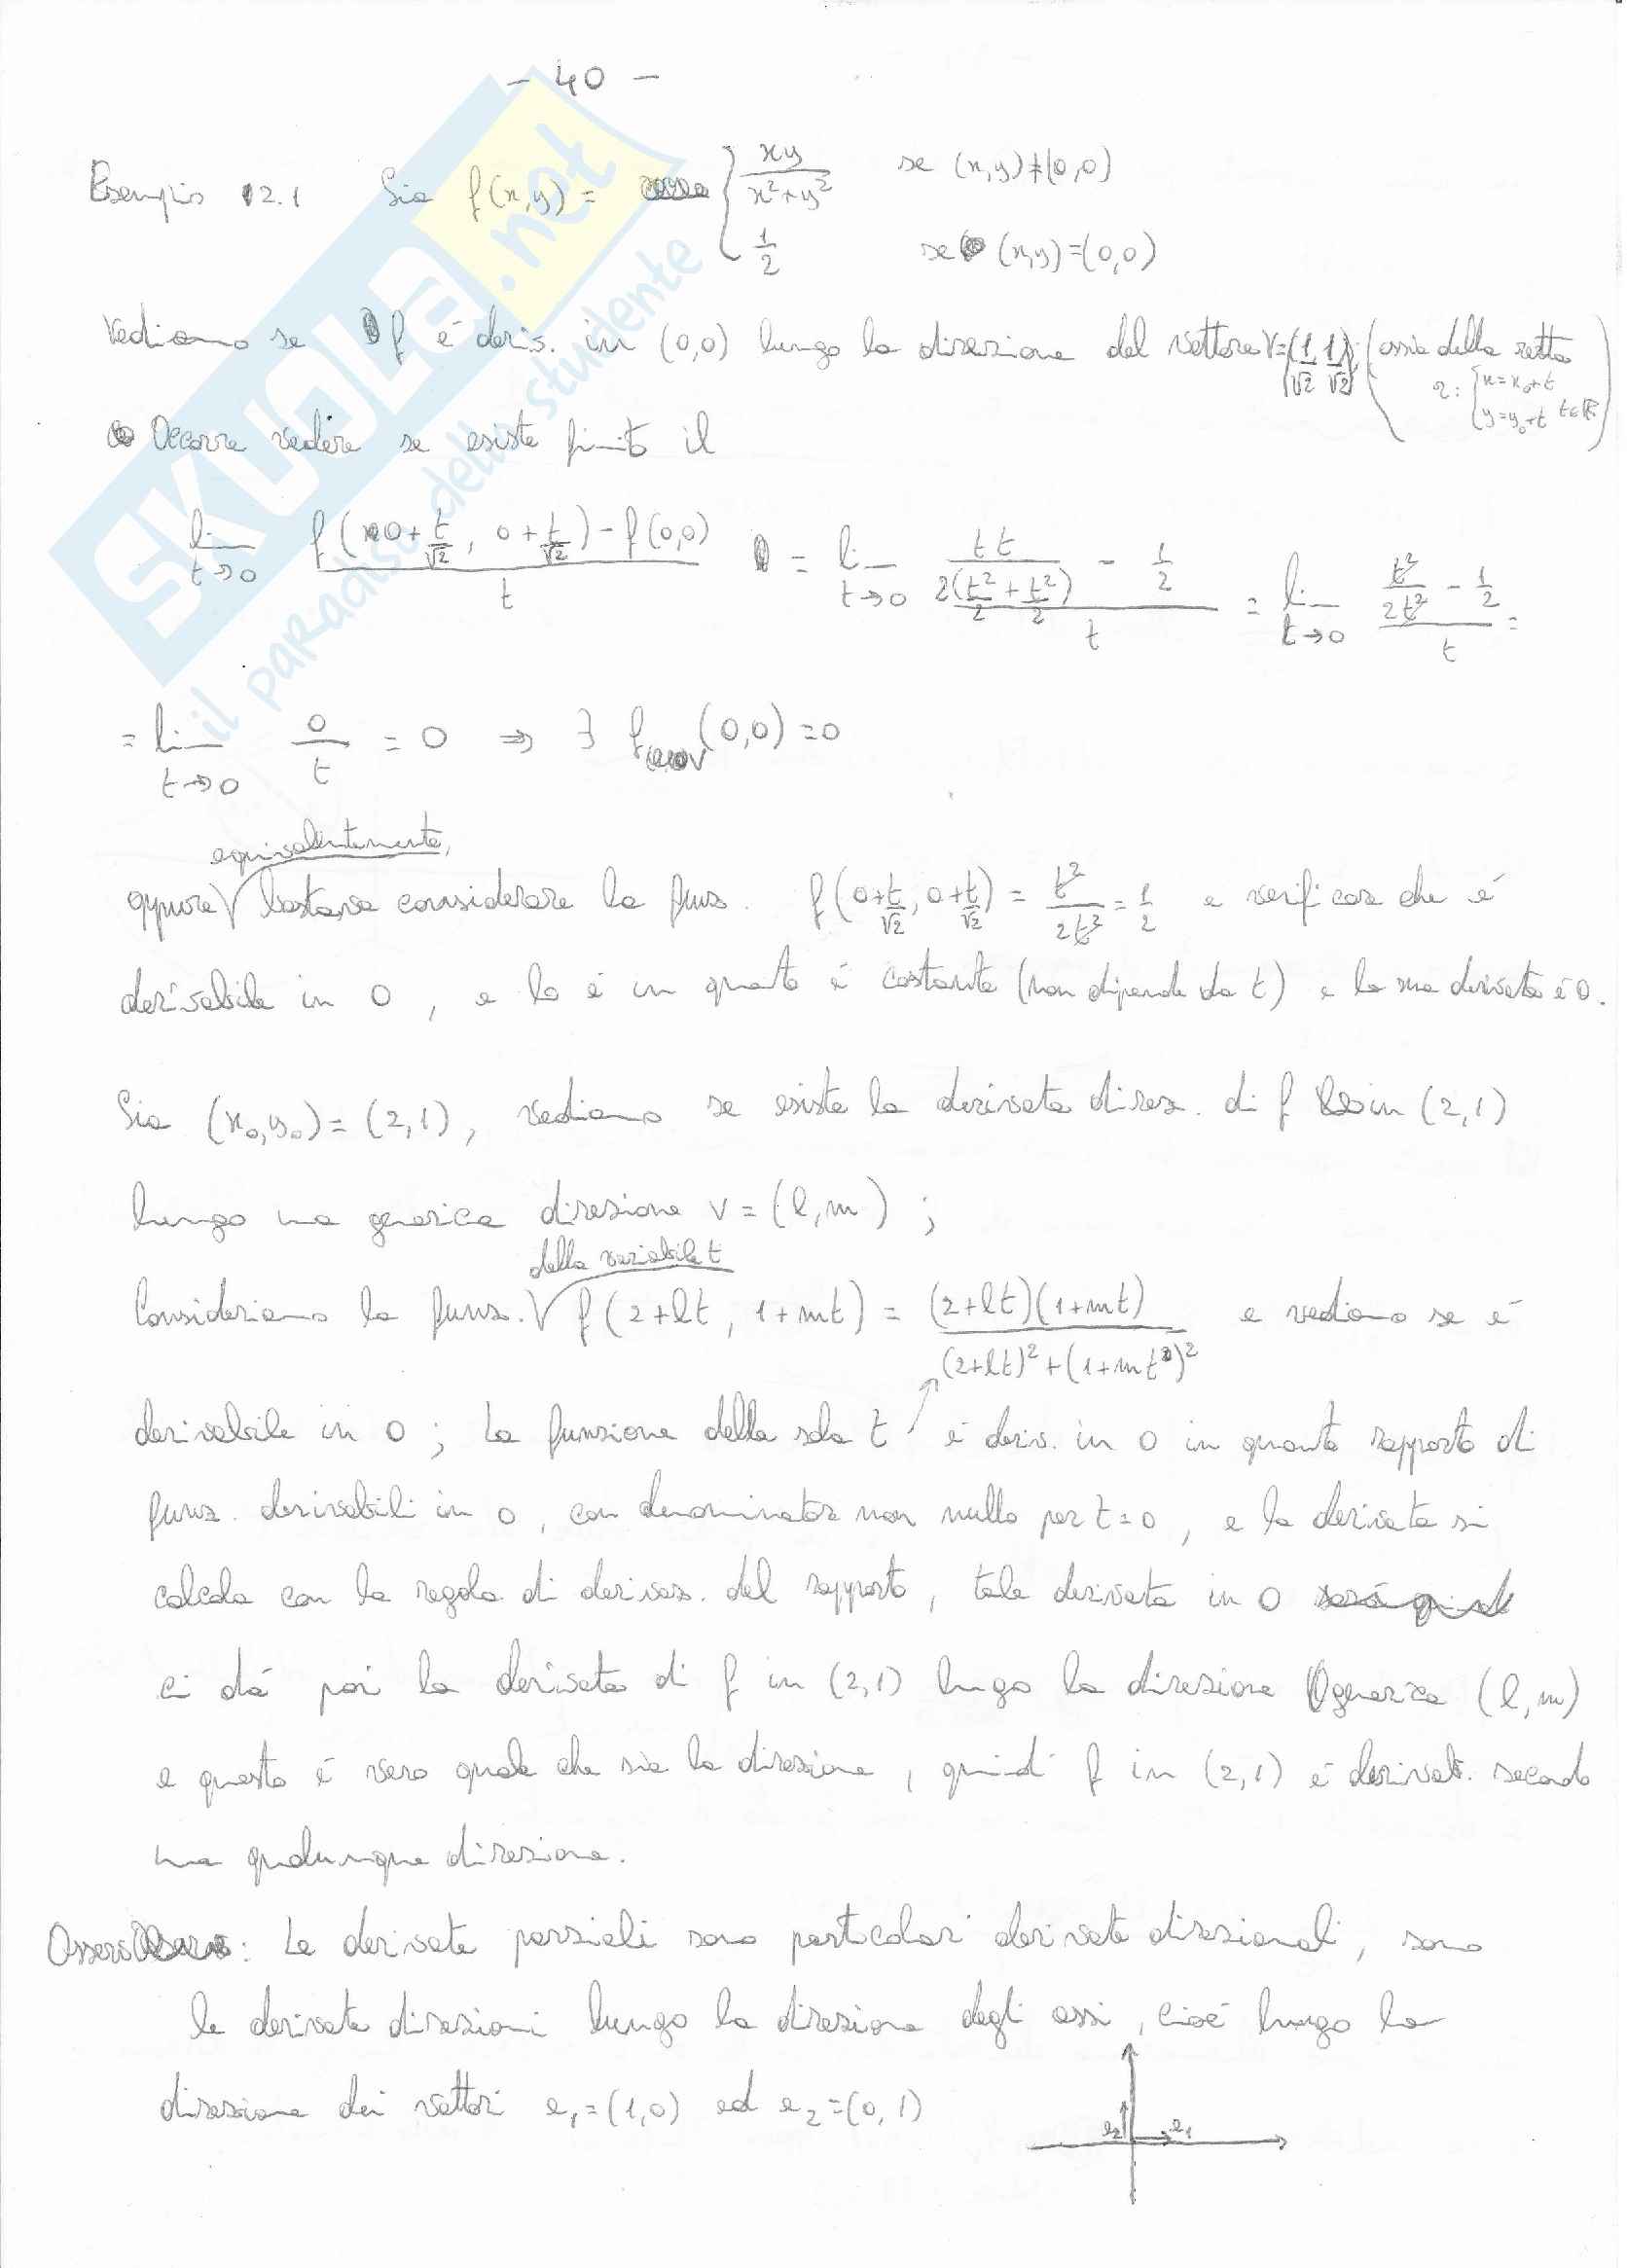 - 40 -
Esempio 12.1 Sia f(x,y) = { xy/(x²+y²) se (x,y)≠(0,0)
1/2 se (x,y)=(0,0)
Vediamo se f è deriv. in (0,0) lungo la direzione del vettore v=(1/√2, 1/√2); (ossia della retta
r: { x=x₀+t
y=y₀+t t∈ℝ )
Occorre vedere se esiste finito il
lim t→0 (f(0+t/√2, 0+t/√2)-f(0,0))/t = lim t→0 (tt/(2(t²/2+t²/2)) - 1/2)/t = lim t→0 (t²/(2t²) - 1/2)/t =
= lim t→0 0/t = 0 ⇒ ∃ f_v(0,0)=0
equivalentemente,
oppure √ bastava considerare la funz. f(0+t/√2, 0+t/√2) = t²/(2t²) = 1/2 e verificare che è
derivabile in 0, e lo è in quanto è costante (non dipende da t) e la sua derivata è 0.
Sia (x₀,y₀)=(2,1), vediamo se esiste la derivata direz. di f in (2,1)
lungo una generica direzione v=(l,m);
della variabile t
Consideriamo la funz. √ f(2+lt, 1+mt) = (2+lt)(1+mt)/((2+lt)²+(1+mt)²) e vediamo se è
derivabile in 0; La funzione della sola t è deriv. in 0 in quanto rapporto di
funz. derivabili in 0, con denominatore non nullo per t=0, e la derivata si
calcola con la regola di derivaz. del rapporto, tale derivata in 0 sarà quindi
ci dà poi la derivata di f in (2,1) lungo la direzione generica (l,m)
e questo è vero quale che sia la direzione, quindi f in (2,1) è derivab. secondo
una qualunque direzione.
Osserv: Le derivate parziali sono particolari derivate direzionali, sono
le derivate direzioni lungo la direzione degli assi, cioè lungo la
direzione dei vettori e₁=(1,0) ed e₂=(0,1)
e₂ e₁
SKUOLA.net
il paradiso dello studente